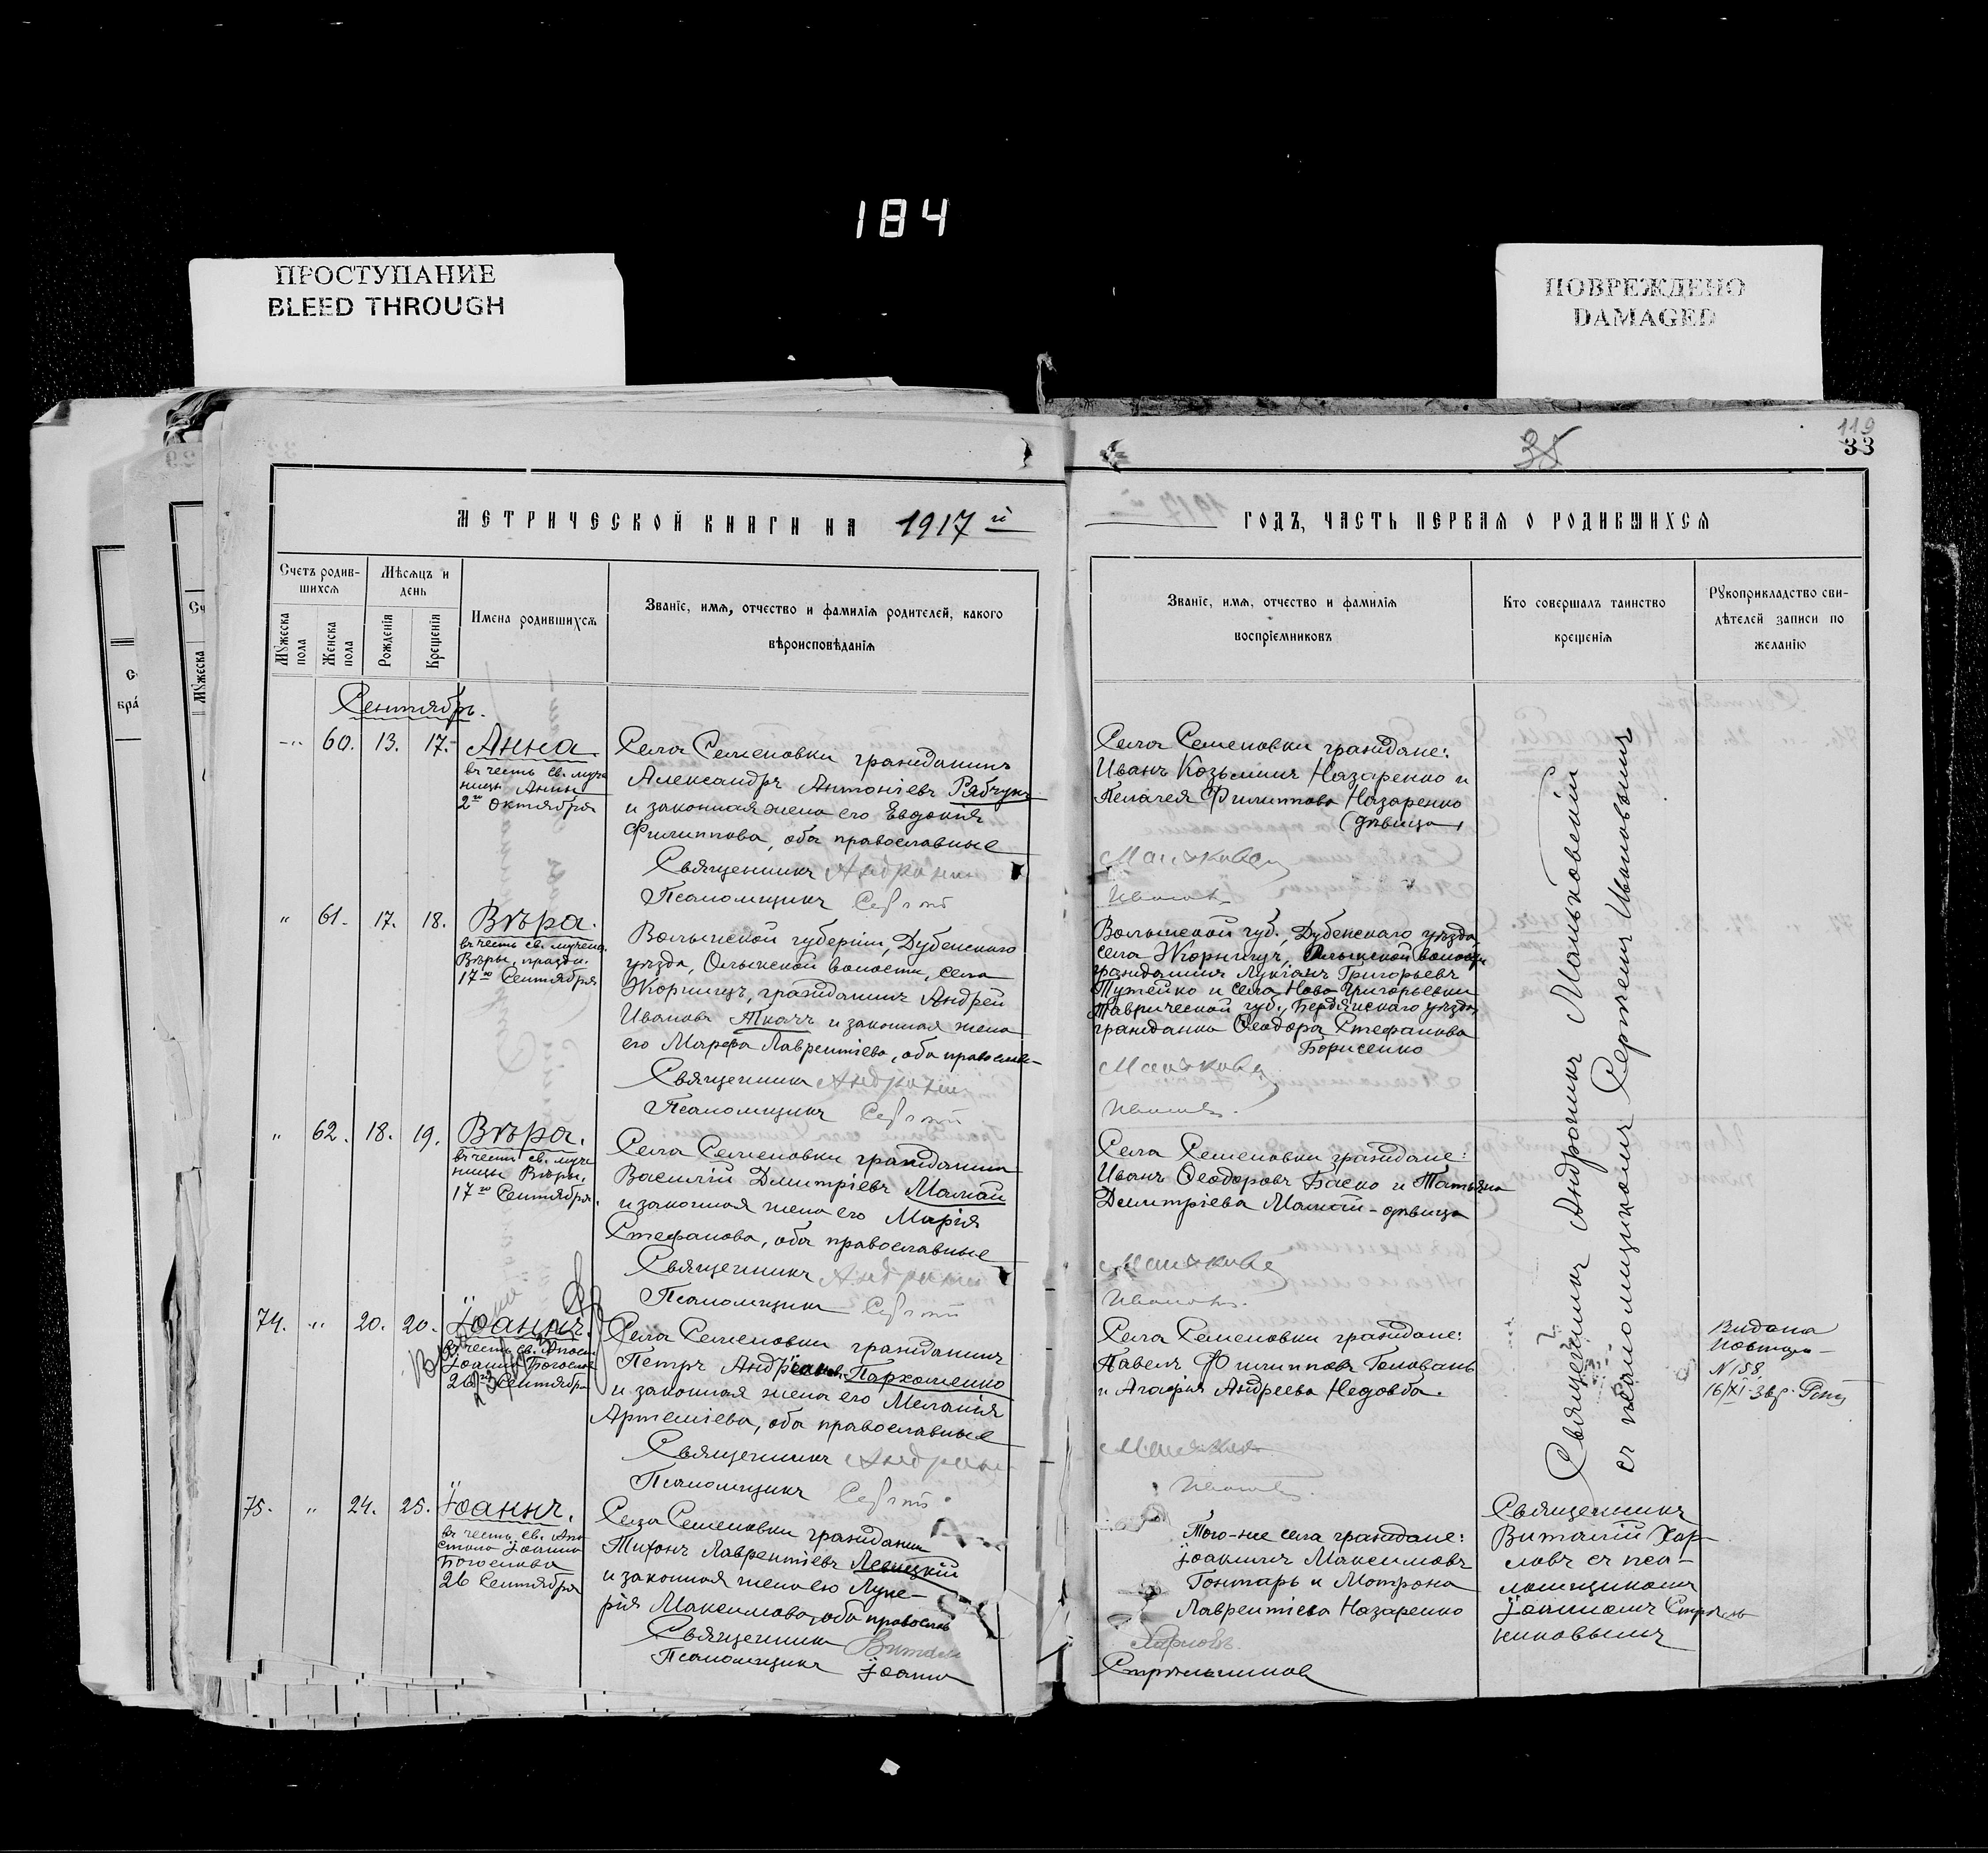 184
ПРОСТУПАНИЕ
BLEED THROUGH
ПОВРЕЖДЕНО
DAMAGED
119
33
МЕТРИЧЕСКОЙ КНИГИ НА 1917й
Счетъ родив-
шихся
Мѣсяцъ и
день
Мужеска
пола
Женска
пола
Рожденія
Крещенія
Имена родившихся
Званіе, имя, отчество и фамилія родителей, какого
вѣроисповѣданія
Сентябрь.
60. 13. 17. Анна.
въ честь св. муче
ницы Анны
2го Октября
Села Семеновки гражданинъ
Александръ Антоніевъ Рябчукъ
и законная жена его Евдокія
Филиппова, оба православные
Священникъ
Псаломщикъ
" 61. 17. 18. Вѣра.
въ честь св. мучен.
Вѣры, праздн.
17го Сентября
Волынской губерніи, Дубенскаго
уѣзда, Олыкской волости, села
Жорнищъ, гражданинъ Андрей
Ивановъ Ткачъ и законная жена
его Марфа Лаврентіева, оба православ
Священникъ
Псаломщикъ
" 62. 18. 19. Вѣра.
въ честь св. муче
ницы Вѣры,
17го Сентября.
Села Семеновки гражданинъ
Василій Димитріевъ Мамай
и законная жена его Марія
Стефанова, оба православные
Священникъ
Псаломщикъ
74. " 20. 20. Іоаннъ.
въ честь св. Апост.
Іоанна Богослова
26го Сентября
Села Семеновки гражданинъ
Петръ Пархоменко
и законная жена его Меланія
Артеміева, оба православные
Священникъ
Псаломщикъ
75. " 24. 25. Іоаннъ.
въ честь св. Апо
стола Іоанна
Богослова
26 Сентября
Села Семеновки гражданинъ
Тихонъ Лаврентіевъ Левицкій
и законная жена его Луке-
рія Максимова, оба православ
Священникъ Витали
Псаломщикъ Іоанн
ГОДЪ, ЧАСТЬ ПЕРВАЯ О РОДИВШИХСЯ
Званіе, имя, отчество и фамилія
воспріемниковъ
Кто совершалъ таинство
крещенія
Рукоприкладство сви-
дѣтелей записи по
желанію
Села Семеновки граждане:
Иванъ Козьминъ Назаренко и
Пелагея Филиппова Назаренко
(дѣвица)
Волынской губ., Дубенскаго уѣзда,
села Жорнищъ, Олыкской волости
гражданинъ Лукіанъ Григорьевъ
Тутейко и села Ново-Григорьевки
Таврической губ., Бердянскаго уѣзда
гражданка Ѳеодора Стефанова
Борисенко
Села Семеновки граждане:
Иванъ Ѳеодоровъ Баско и Татьяна
Димитріева Мамай-дѣвица
Села Семеновки граждане:
Павелъ Филипповъ Головань
и Агафія Андреева Недовба.
Того-же села граждане:
Іоакимъ Максимовъ
Гонтарь и Мотрона
Лаврентіева Назаренко
Харловъ.
Стрѣльниковъ
Священникъ Андроникъ Маньковскій
съ псаломщикомъ Сергіемъ Ивановымъ
Священникъ
Виталій Хар-
ловъ съ пса-
ломщикомъ
Іоанномъ Стрѣль
никовымъ
Видана
N 158